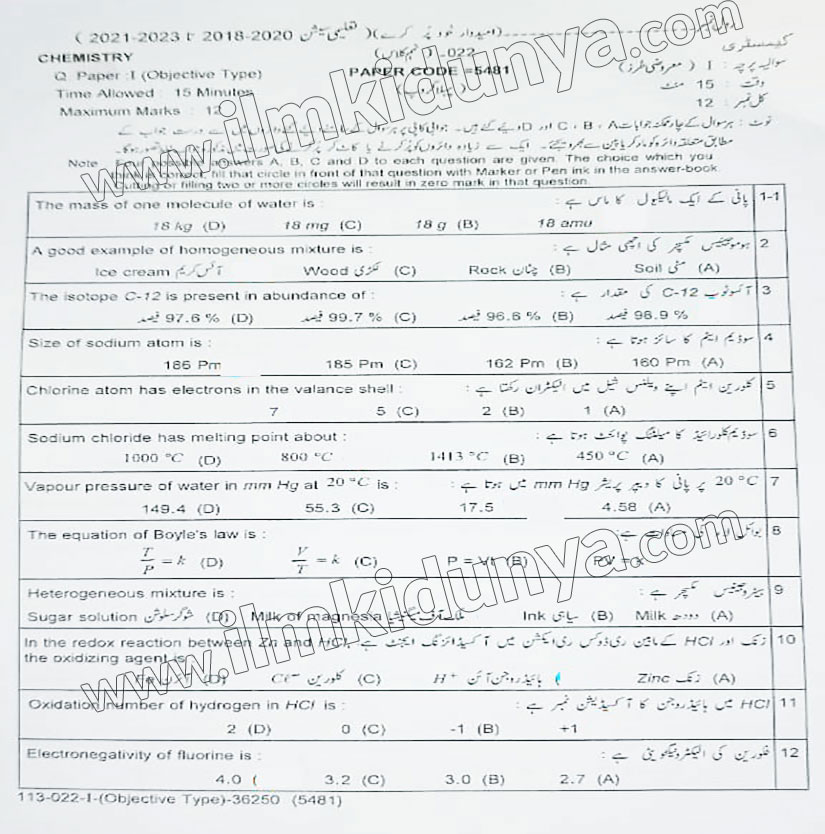 ( تعلیمی سیشن 2018-2020 تا 2021-2023 )
CHEMISTRY
022-
کیمسٹری
Q. Paper : I (Objective Type)
PAPER CODE = 5481
سوالیہ پرچہ : I ( معروضی طرز )
Time Allowed : 15 Minutes
وقت : 15 منٹ
Maximum Marks : 12
کل نمبر : 12
Note
answers A, B, C and D to each question are given. The choice which you
correct, fill that circle in front of that question with Marker or Pen ink in the answer-book.
Cutting or filling two or more circles will result in zero mark in that question.
1-1 پانی کے ایک مالیکیول کا ماس ہے :
The mass of one molecule of water is :
18 amu 18 g (B) 18 mg (C) 18 kg (D)
2 ہوموجینئس مکسچر کی اچھی مثال ہے :
A good example of homogeneous mixture is :
Soil مٹی (A) Rock چٹان (B) Wood لکڑی (C) Ice cream آئس کریم
3 آئسوٹوپ C-12 کی مقدار ہے :
The isotope C-12 is present in abundance of :
98.9 % فیصد 96.6 % فیصد (B) 99.7 % فیصد (C) 97.6 % فیصد (D)
4 سوڈیم ایٹم کا سائز ہوتا ہے :
Size of sodium atom is :
160 Pm (A) 162 Pm (B) 185 Pm (C) 186 Pm
5 کلورین ایٹم اپنے ویلنس شیل میں الیکٹران رکھتا ہے :
Chlorine atom has electrons in the valance shell :
1 (A) 2 (B) 5 (C) 7
6 سوڈیم کلورائیڈ کا میلٹنگ پوائنٹ ہوتا ہے :
Sodium chloride has melting point about :
450 °C (A) 1413 °C (B) 800 °C 1000 °C (D)
7 20 °C پر پانی کا ویپر پریشر mm Hg میں ہوتا ہے :
Vapour pressure of water in mm Hg at 20 °C is :
4.58 (A) 17.5 55.3 (C) 149.4 (D)
8
The equation of Boyle's law is :
PV = k P = Vt (B) V/T = k (C) T/P = k (D)
9 ہیٹروجینئس مکسچر ہے :
Heterogeneous mixture is :
Milk دودھ (A) Ink سیاہی (B) Milk of magnesia ملک آف میگنیشیا Sugar solution شوگر سلوشن (D)
10 زنک اور HCl کے مابین ری ڈوکس ری ایکشن میں آکسیڈائزنگ ایجنٹ ہے
In the redox reaction between Zn and HCl,
the oxidizing agent is
Zinc زنک (A) H⁺ ہائیڈروجن آئن ( Cl⁻ کلورین (C) (D)
11 HCl میں ہائیڈروجن کا آکسیڈیشن نمبر ہے :
Oxidation number of hydrogen in HCl is :
+1 -1 (B) 0 (C) 2 (D)
12 فلورین کی الیکٹرونیگیٹویٹی ہے :
Electronegativity of fluorine is :
2.7 (A) 3.0 (B) 3.2 (C) 4.0 (
113-022-I-(Objective Type)-36250 (5481)
www.ilmkidunya.com
www.ilmkidunya.com